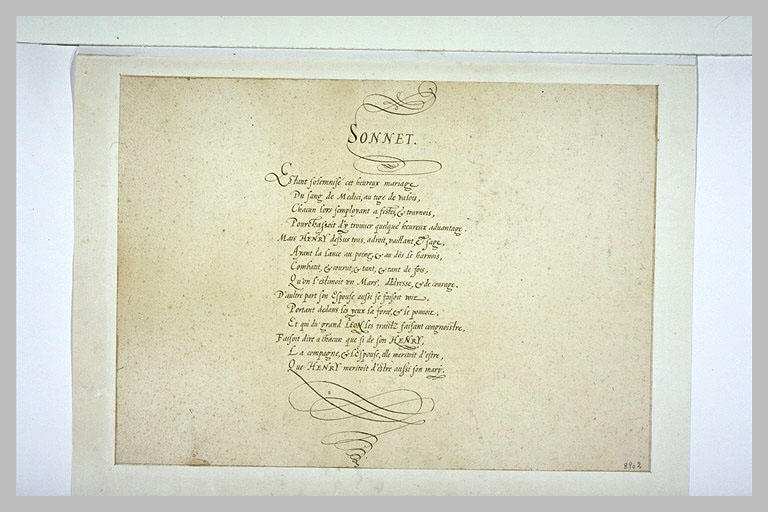 SONNET.
Estant solemnisé cet heureux mariage
Du sang de Medici, au tige de Valois,
Chacun lors semployant a festes, & tournois,
Pourchassoit d'y trouuer quelque heureux aduantage.
Mais HENRY dessus tous, adroit, vaillant, & sage,
Ayant la lance au poing, & au dos le harnois,
Combatit, & courut, & tant, & tant de fois,
Qu'on l'estimoit vn Mars, d'adresse, & de courage.
D'autre part son Espouse aussi se faisoit voir
Portant dedans les yeux la force, & le pouuoir.
Et qui du grand LEON les traitz faisant congnoistre,
Faisoit dire a chacun que si de son HENRY,
La compagne, & l'Espouse, elle meritoit d'estre,
Que HENRY meritoit d'estre aussi son mary.
8902